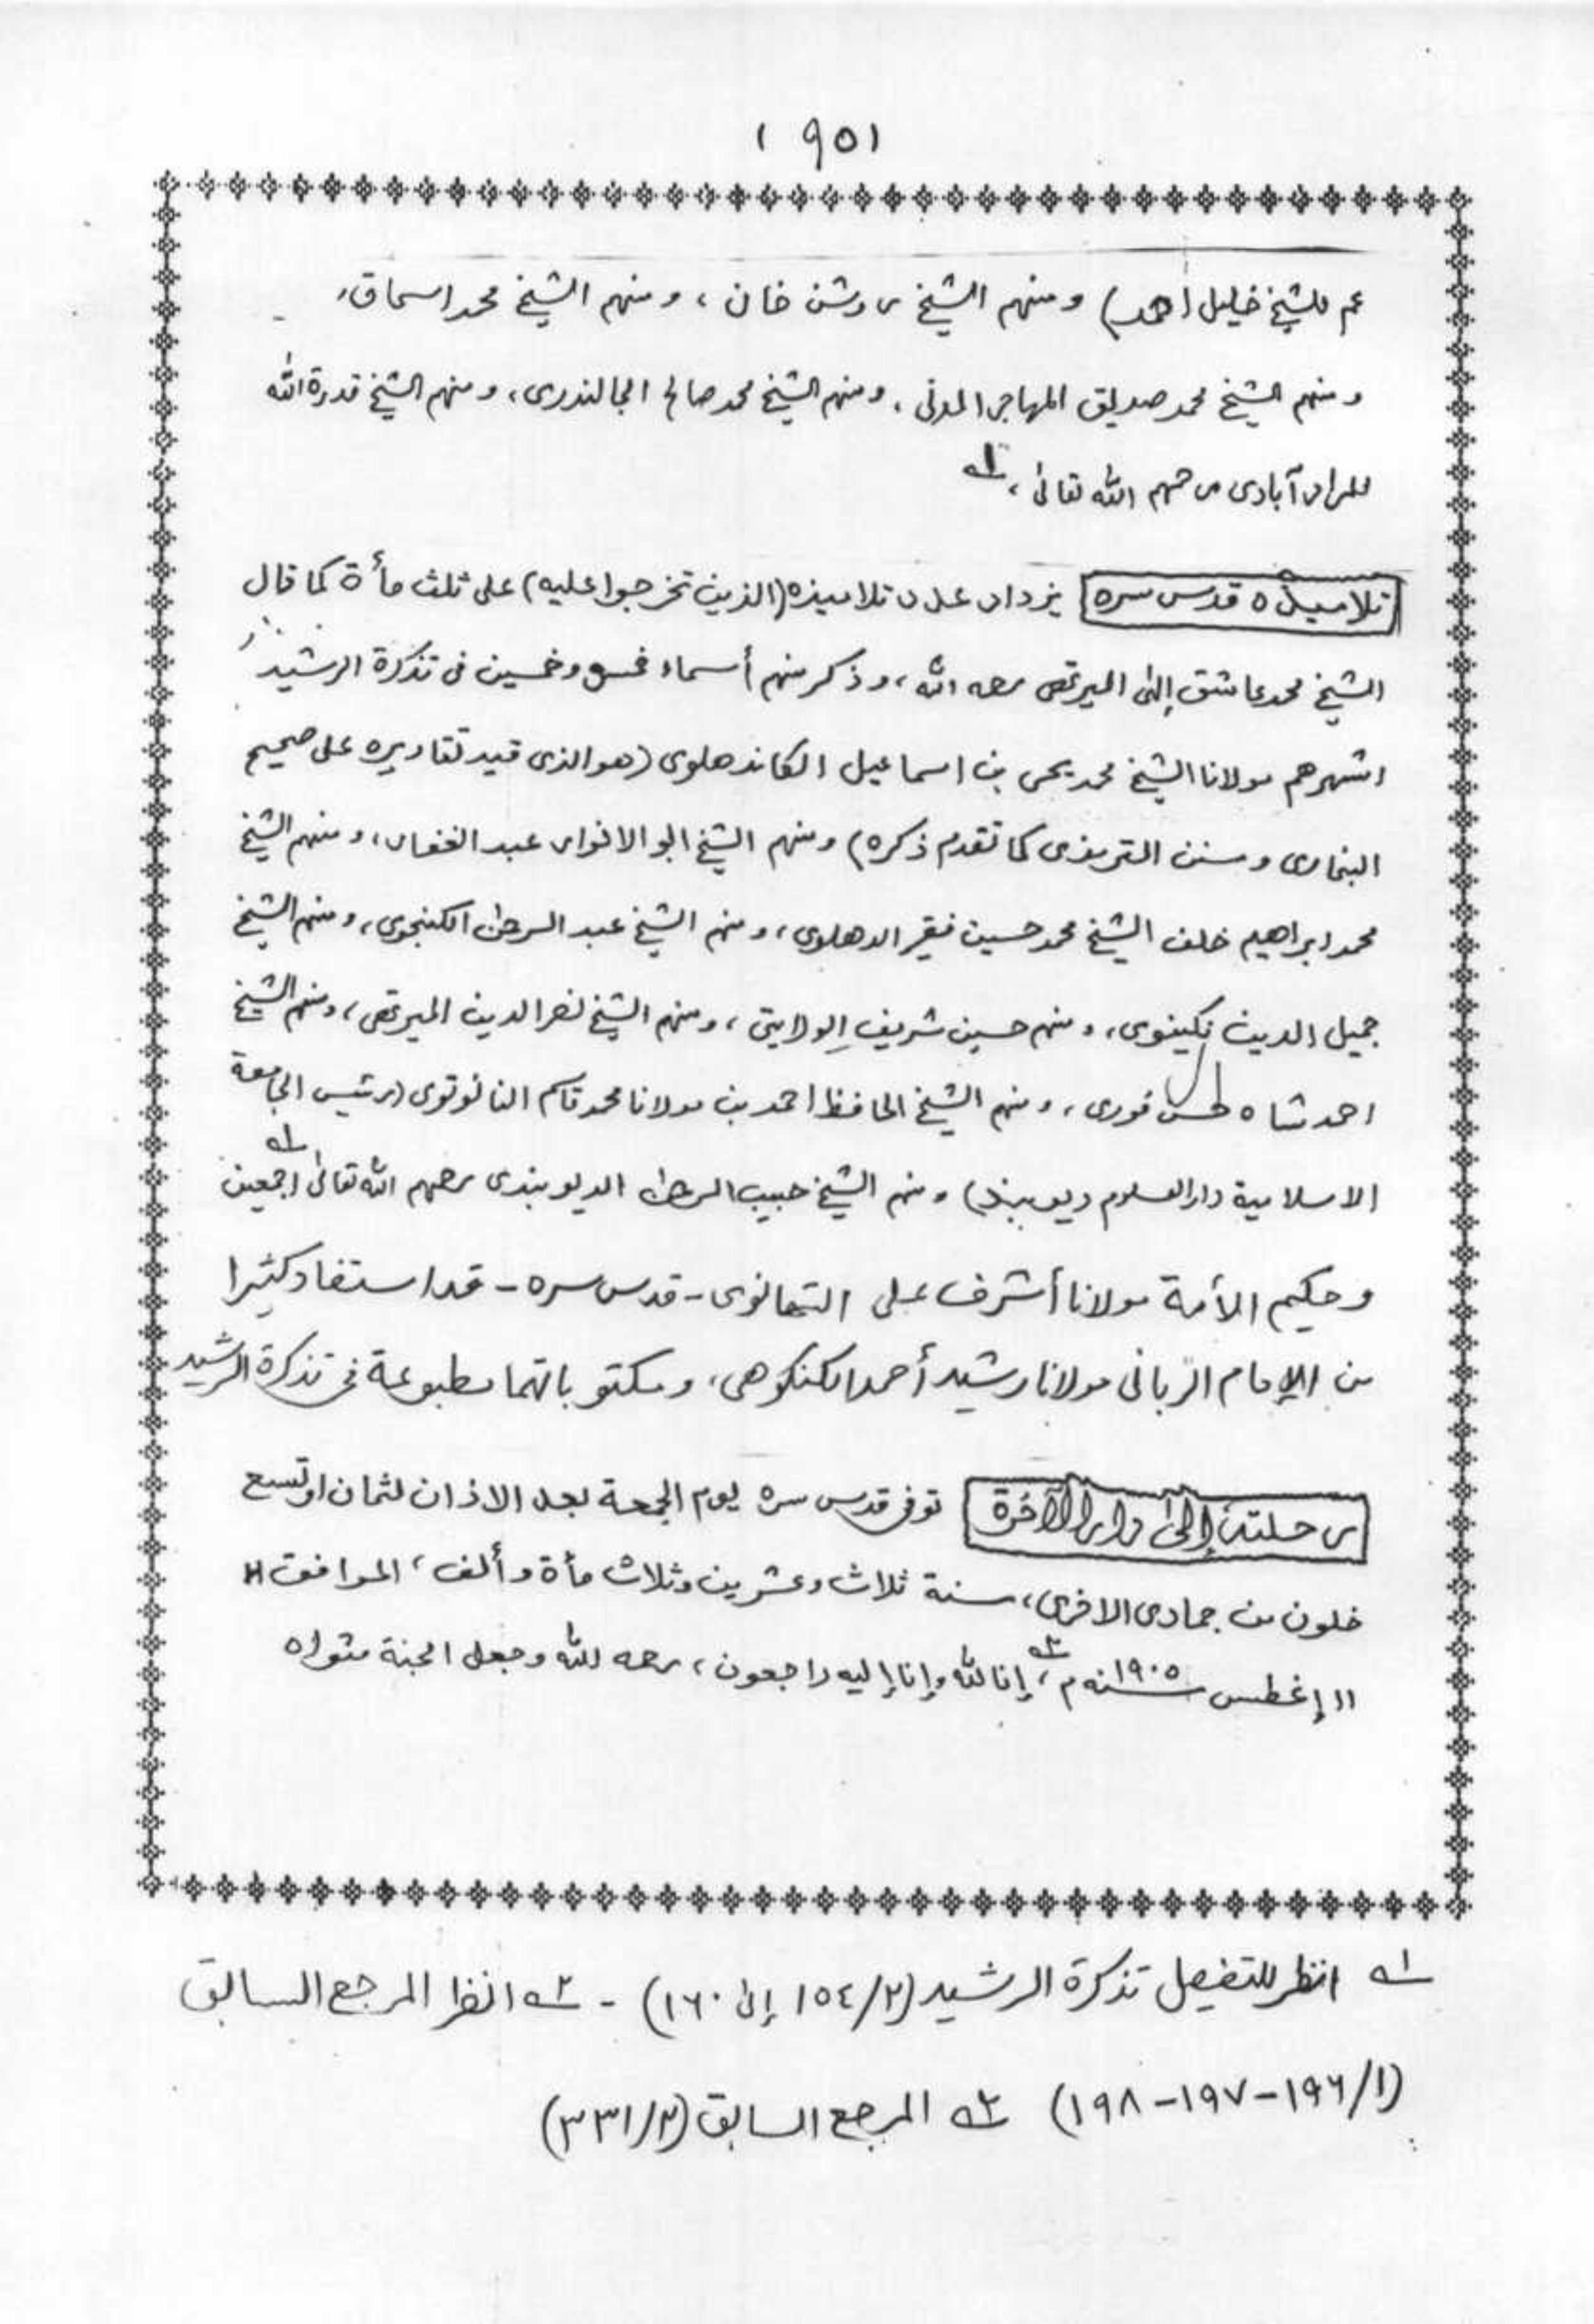 ( ٩٥١
عم للشيخ خليل احمد) ومنهم الشيخ روشن خان ، ومنهم الشيخ محمد اسحاق،
ومنهم الشيخ محمد صديق المهاجر المدنى ، ومنهم الشيخ محمد صالح الجالندرى، ومنهم الشيخ قدرة الله
المرادآبادى رحمهم الله تعالىٰ ، ؂۱
تلاميذه قدس سره يزداد عدد تلاميذه (الذين تخرجوا عليه) على ثلث مأة كما قال
الشيخ محمد عاشق إلٰهى الميرتهى رحمه الله ، وذكر منهم أسماء خمس وخمسين فى تذكرة الرشيد،
اشهرهم مولانا الشيخ محمد يحيى بن اسماعيل الكاندهلوى (هو الذى قيد تقاريره على صحيح
البخارى وسنن الترمذى كما تقدم ذكره) ومنهم الشيخ ابو الانوار عبد الغفار، ومنهم الشيخ
محمد ابراهيم خلف الشيخ محمد حسين فقير الدهلوى، ومنهم الشيخ عبد الرحمٰن الكنجوى، ومنهم الشيخ
جميل الدين نكينوى، ومنهم حسين شريف الولايتى ، ومنهم الشيخ نصر الدين الميرتهى، ومنهم الشيخ
احمد شاه حسن فورى، ومنهم الشيخ الحافظ احمد بن مولانا محمد قاسم النانوتوى (رئيس الجامعة
الاسلامية دار العلوم ديوبند) ومنهم الشيخ حبيب الرحمٰن الديوبندى رحمهم الله تعالىٰ اجمعين ؂۲
وحكيم الأمة مولانا أشرف على التهانوى - قدس سره - قد استفاد كثيرا
من الإمام الربانى مولانا رشيد أحمد الكنكوهى، ومكتوباتهما مطبوعة فى تذكرة الرشيد
رحلته إلىٰ دار الآخرة توفى قدس سره يوم الجمعة بعد الاذان لثمان او تسع
خلون من جمادى الاخرى، سنة ثلاث وعشرين وثلاث مأة وألف، الموافق ۱۱
۱۱ إغطس سنه ۱۹۰۵ م ؂۳، إنا لله وإنا إليه راجعون، رحمه الله وجعل الجنة مثواه
؂۱ انظر للتفصيل تذكرة الرشيد (۲/١٥٤ إلى ١٦٠) - ؂۲ انظر المرجع السابق
(١/١٩٦-١٩٧-١٩٨) ؂۳ المرجع السابق (۲/٣٣١)